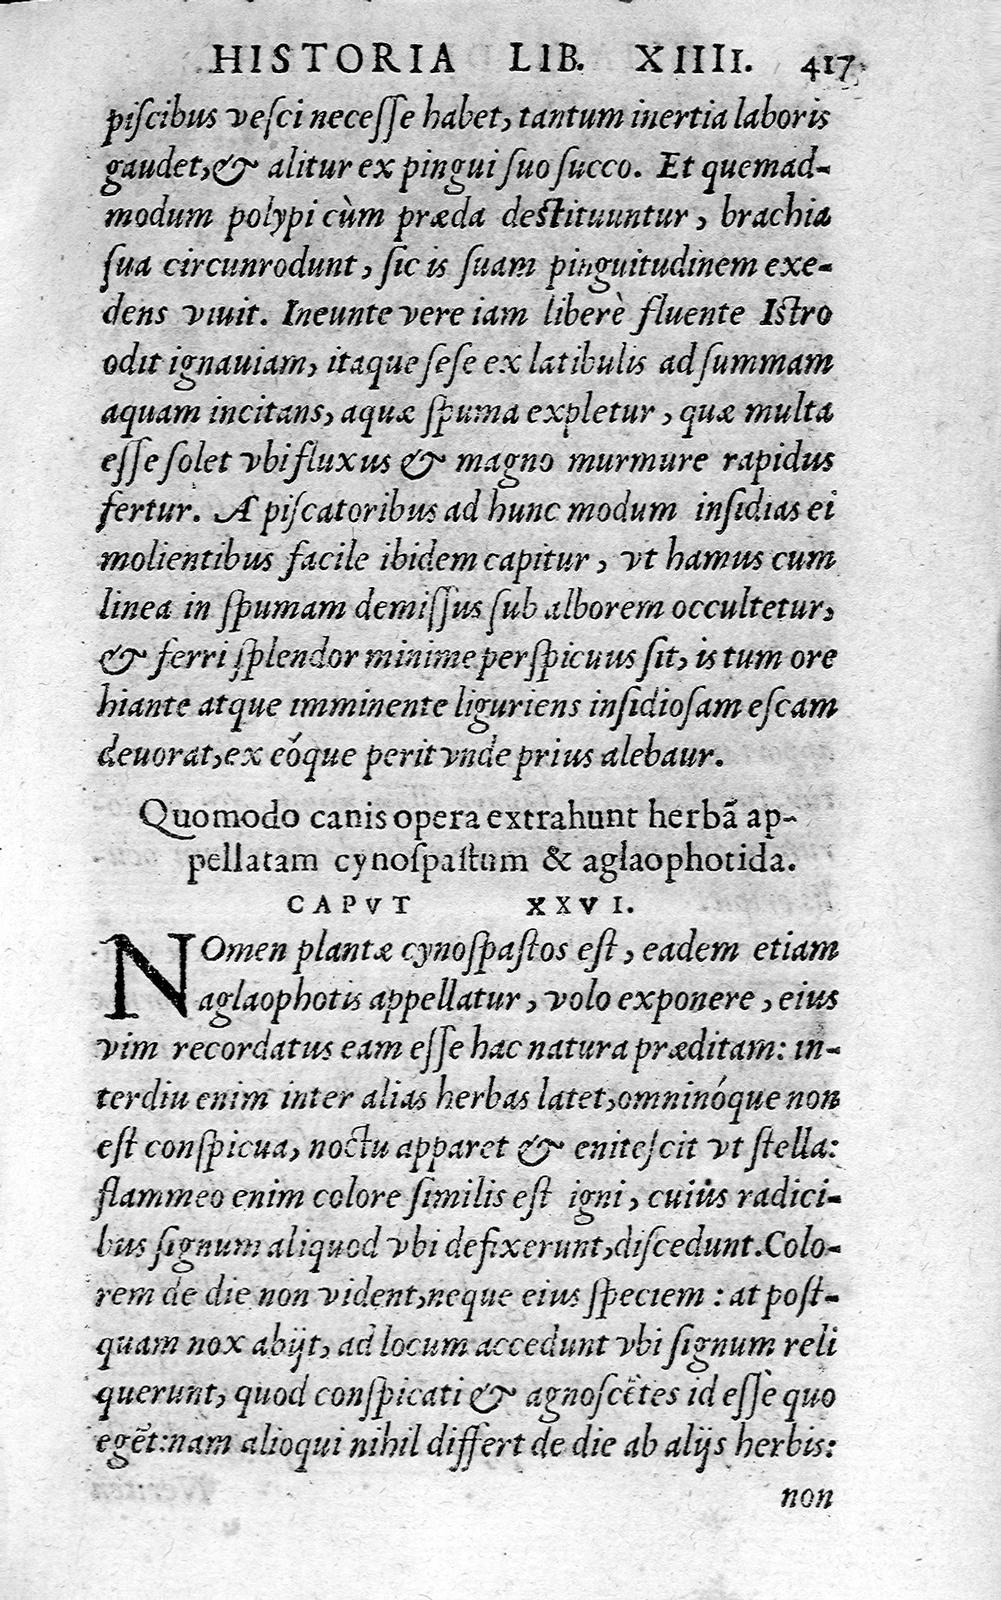 HISTORIA LIB. XIIII. 417
piſcibus veſci neceſſe habet, tantum inertia laboris
gaudet, & alitur ex pingui ſuo ſucco. Et quemad-
modum polypi cùm præda deſtituuntur, brachia
ſua circunrodunt, ſic is ſuam pinguitudinem exe-
dens viuit. Ineunte vere iam liberè fluente Iſtro
odit ignauiam, itaque ſeſe ex latibulis ad ſummam
aquam incitans, aquæ ſpuma expletur, quæ multa
eſſe ſolet vbi fluxus & magno murmure rapidus
fertur. A piſcatoribus ad hunc modum inſidias ei
molientibus facile ibidem capitur, vt hamus cum
linea in ſpumam demiſſus ſub alborem occultetur,
& ferri ſplendor minime perſpicuus ſit, is tum ore
hiante atque imminente liguriens inſidioſam eſcam
deuorat, ex eóque perit vnde prius alebaur.
Quomodo canis opera extrahunt herbã ap-
pellatam cynoſpaſtum & aglaophotida.
CAPVT XXVI.
NOmen plantæ cynoſpaſtos eſt, eadem etiam
aglaophotis appellatur, volo exponere, eius
vim recordatus eam eſſe hac natura præditam: in-
terdiu enim inter alias herbas latet, omninóque non
eſt conſpicua, noctu apparet & eniteſcit vt ſtella:
flammeo enim colore ſimilis eſt igni, cuius radici-
bus ſignum aliquod vbi defixerunt, diſcedunt. Colo-
rem de die non vident, neque eius ſpeciem: at poſt-
quam nox abijt, ad locum accedunt vbi ſignum reli
querunt, quod conſpicati & agnoſcẽtes id eſſe quo
egẽt: nam alioqui nihil differt de die ab alijs herbis:
non